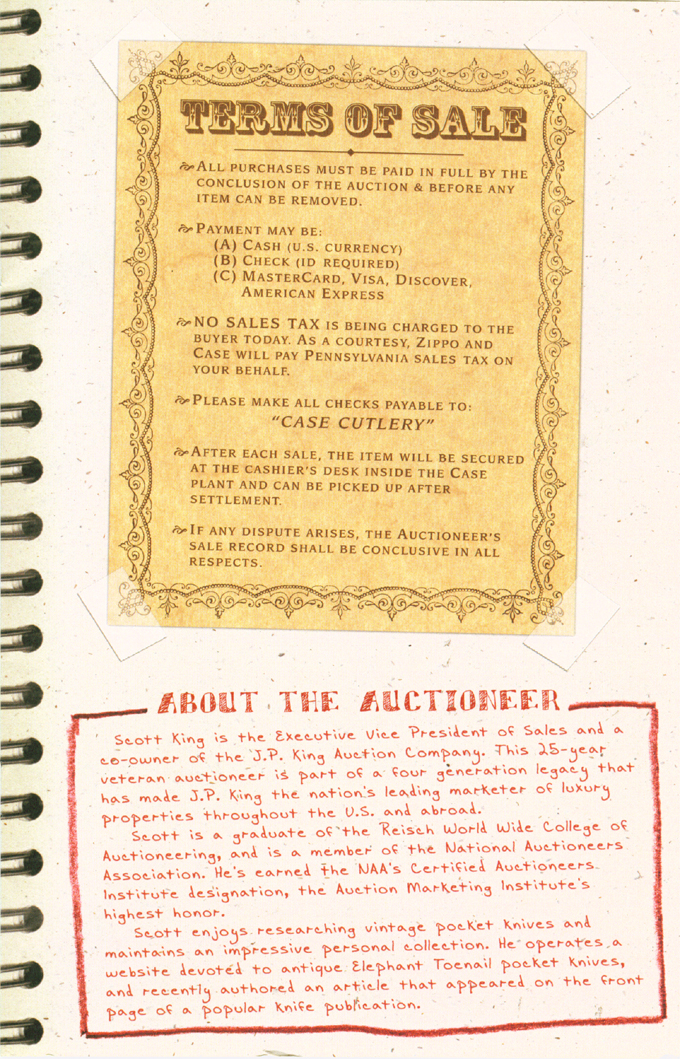 TERMS OF SALE
ALL PURCHASES MUST BE PAID IN FULL BY THE
CONCLUSION OF THE AUCTION & BEFORE ANY
ITEM CAN BE REMOVED.
PAYMENT MAY BE:
(A) CASH (U.S. CURRENCY)
(B) CHECK (ID REQUIRED)
(C) MASTERCARD, VISA, DISCOVER,
AMERICAN EXPRESS
NO SALES TAX IS BEING CHARGED TO THE
BUYER TODAY. AS A COURTESY, ZIPPO AND
CASE WILL PAY PENNSYLVANIA SALES TAX ON
YOUR BEHALF.
PLEASE MAKE ALL CHECKS PAYABLE TO:
"CASE CUTLERY"
AFTER EACH SALE, THE ITEM WILL BE SECURED
AT THE CASHIER'S DESK INSIDE THE CASE
PLANT AND CAN BE PICKED UP AFTER
SETTLEMENT.
IF ANY DISPUTE ARISES, THE AUCTIONEER'S
SALE RECORD SHALL BE CONCLUSIVE IN ALL
RESPECTS.
ABOUT THE AUCTIONEER
Scott King is the Executive Vice President of Sales and a
co-owner of the J.P. King Auction Company. This 25-year
veteran auctioneer is part of a four generation legacy that
has made J.P. King the nation's leading marketer of luxury
properties throughout the U.S. and abroad.
Scott is a graduate of the Reisch World Wide College of
Auctioneering, and is a member of the National Auctioneers
Association. He's earned the NAA's Certified Auctioneers
Institute designation, the Auction Marketing Institute's
highest honor.
Scott enjoys researching vintage pocket knives and
maintains an impressive personal collection. He operates a
website devoted to antique Elephant Toenail pocket knives,
and recently authored an article that appeared on the front
page of a popular knife publication.